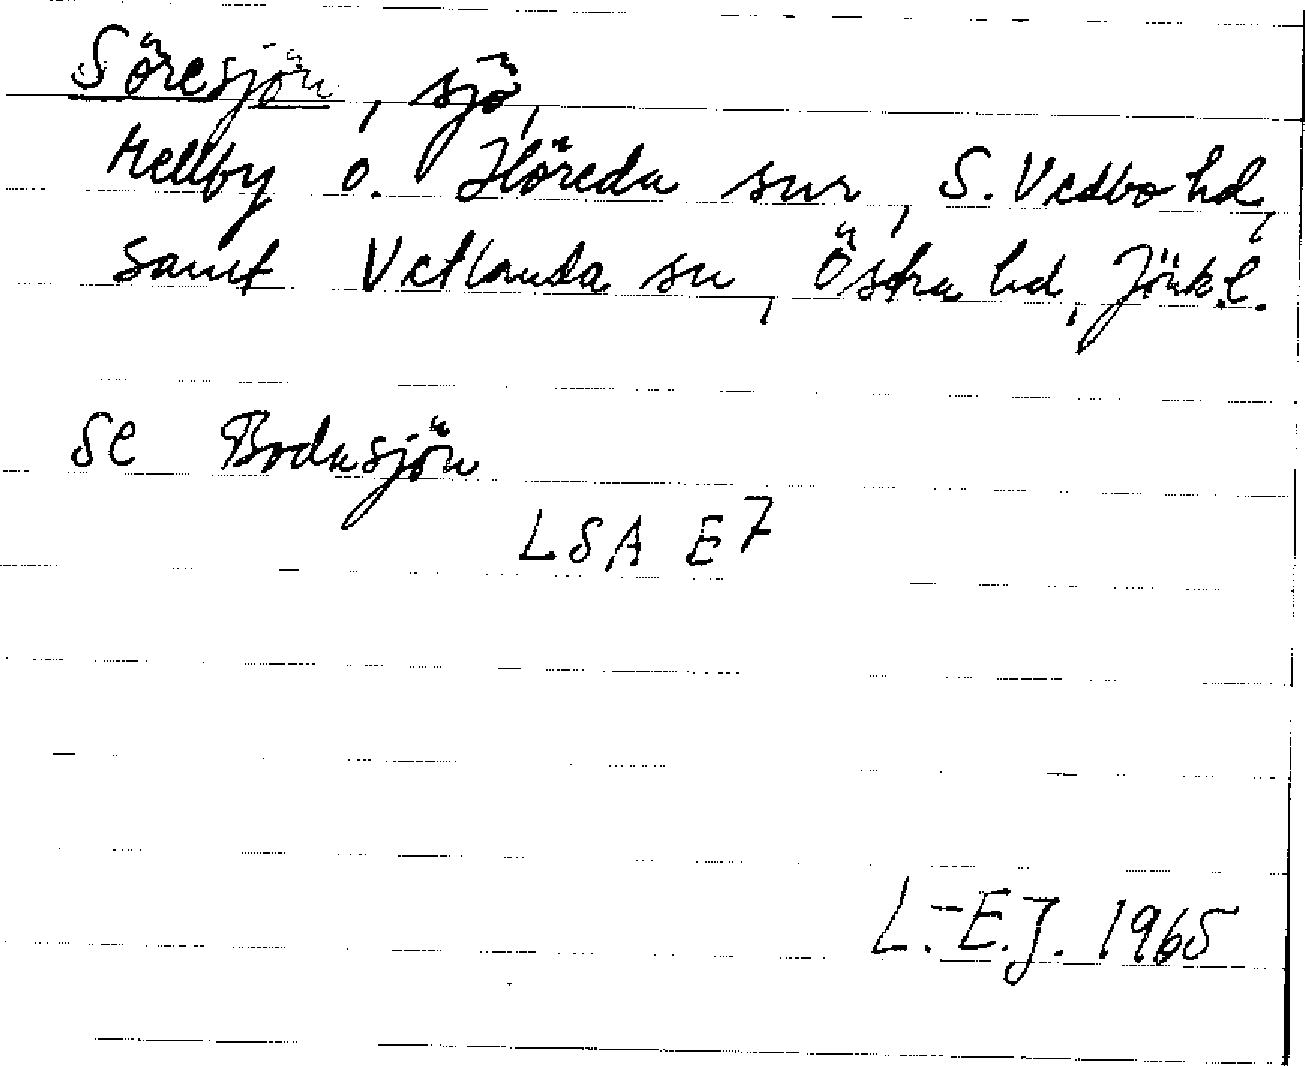 Söresjön, sjö,
Mellby o. Höreda snr, S. Vedbo hd,
samt Vetlanda sn, Östra hd, Jönk.l.
se Bodasjön
LSA E7
L.-E.J. 1965